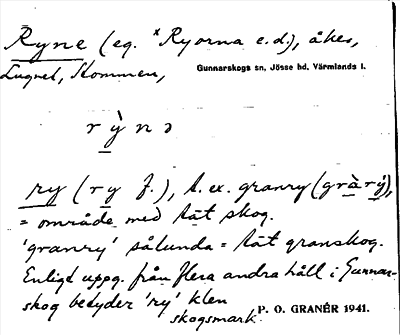 Ryne (eg. *Ryorna e.d.), åker,
Lugnet, Stommen,
Gunnarskogs sn, Jösse hd, Värmlands l.
r ỳ n ɔ
ry (r y f.), t. ex. granry (gràrý),
= område med tät skog.
'granry' sålunda = tät granskog.
Enligt uppg. från flera andra håll i Gunnar-
skog betyder 'ry' klen
skogsmark.
P. O. GRANÉR 1941.